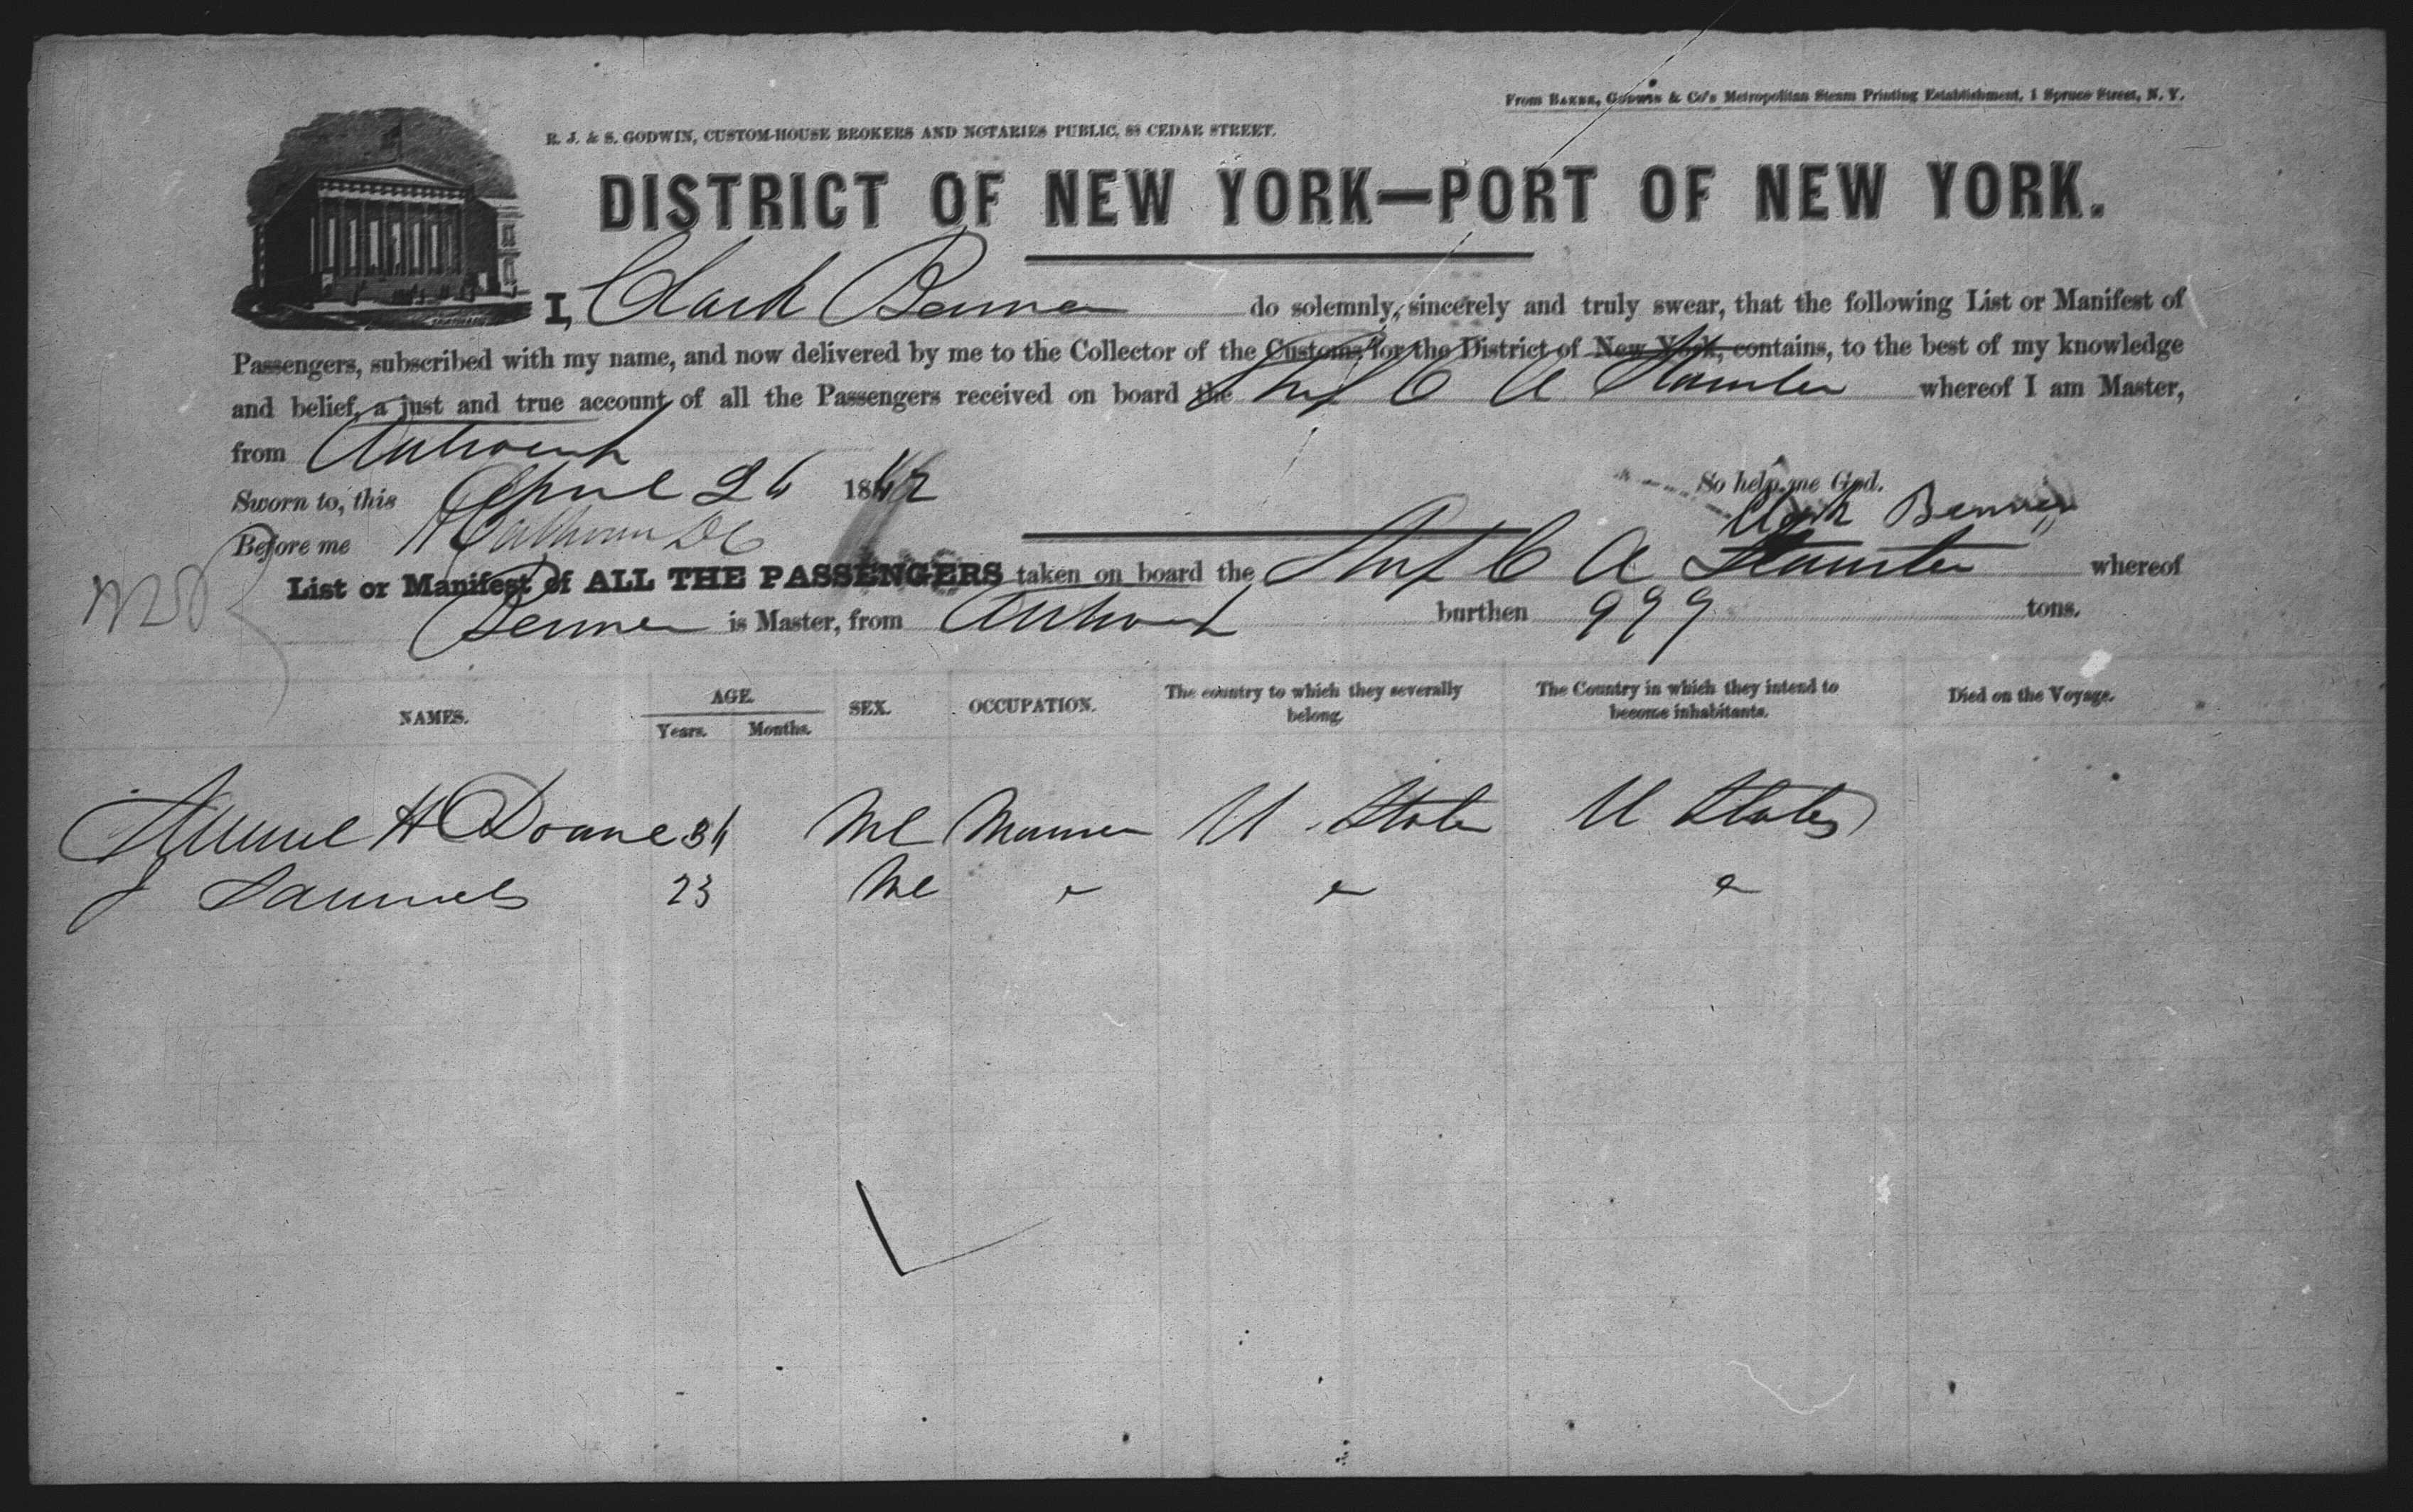 From BAKER, GODWIN & Co's Metropolitan Steam Printing Establishment, 1 Spruce Street, N. Y.
R. J. & S. GODWIN, CUSTOM-HOUSE BROKERS AND NOTARIES PUBLIC, 88 CEDAR STREET.
DISTRICT OF NEW YORK—PORT OF NEW YORK.
I, Clark Benner do solemnly, sincerely and truly swear, that the following List or Manifest of
Passengers, subscribed with my name, and now delivered by me to the Collector of the Customs for the District of New York, contains, to the best of my knowledge
and belief, a just and true account of all the Passengers received on board the Ship C A whereof I am Master,
from Antwerp
Sworn to, this April 26 18
So help me God.
Before me Calhoun DC
Clark Benner
List or Manifest of ALL THE PASSENGERS taken on board the Ship C A whereof
Benner is Master, from Antwerp burthen 999 tons.
NAMES. AGE. SEX. OCCUPATION. The country to which they severally belong. The Country in which they intend to become inhabitants. Died on the Voyage.
Years. Months.
H Doane 34 Ml Mariner U States U States
J Samuels 23 Ml " " "